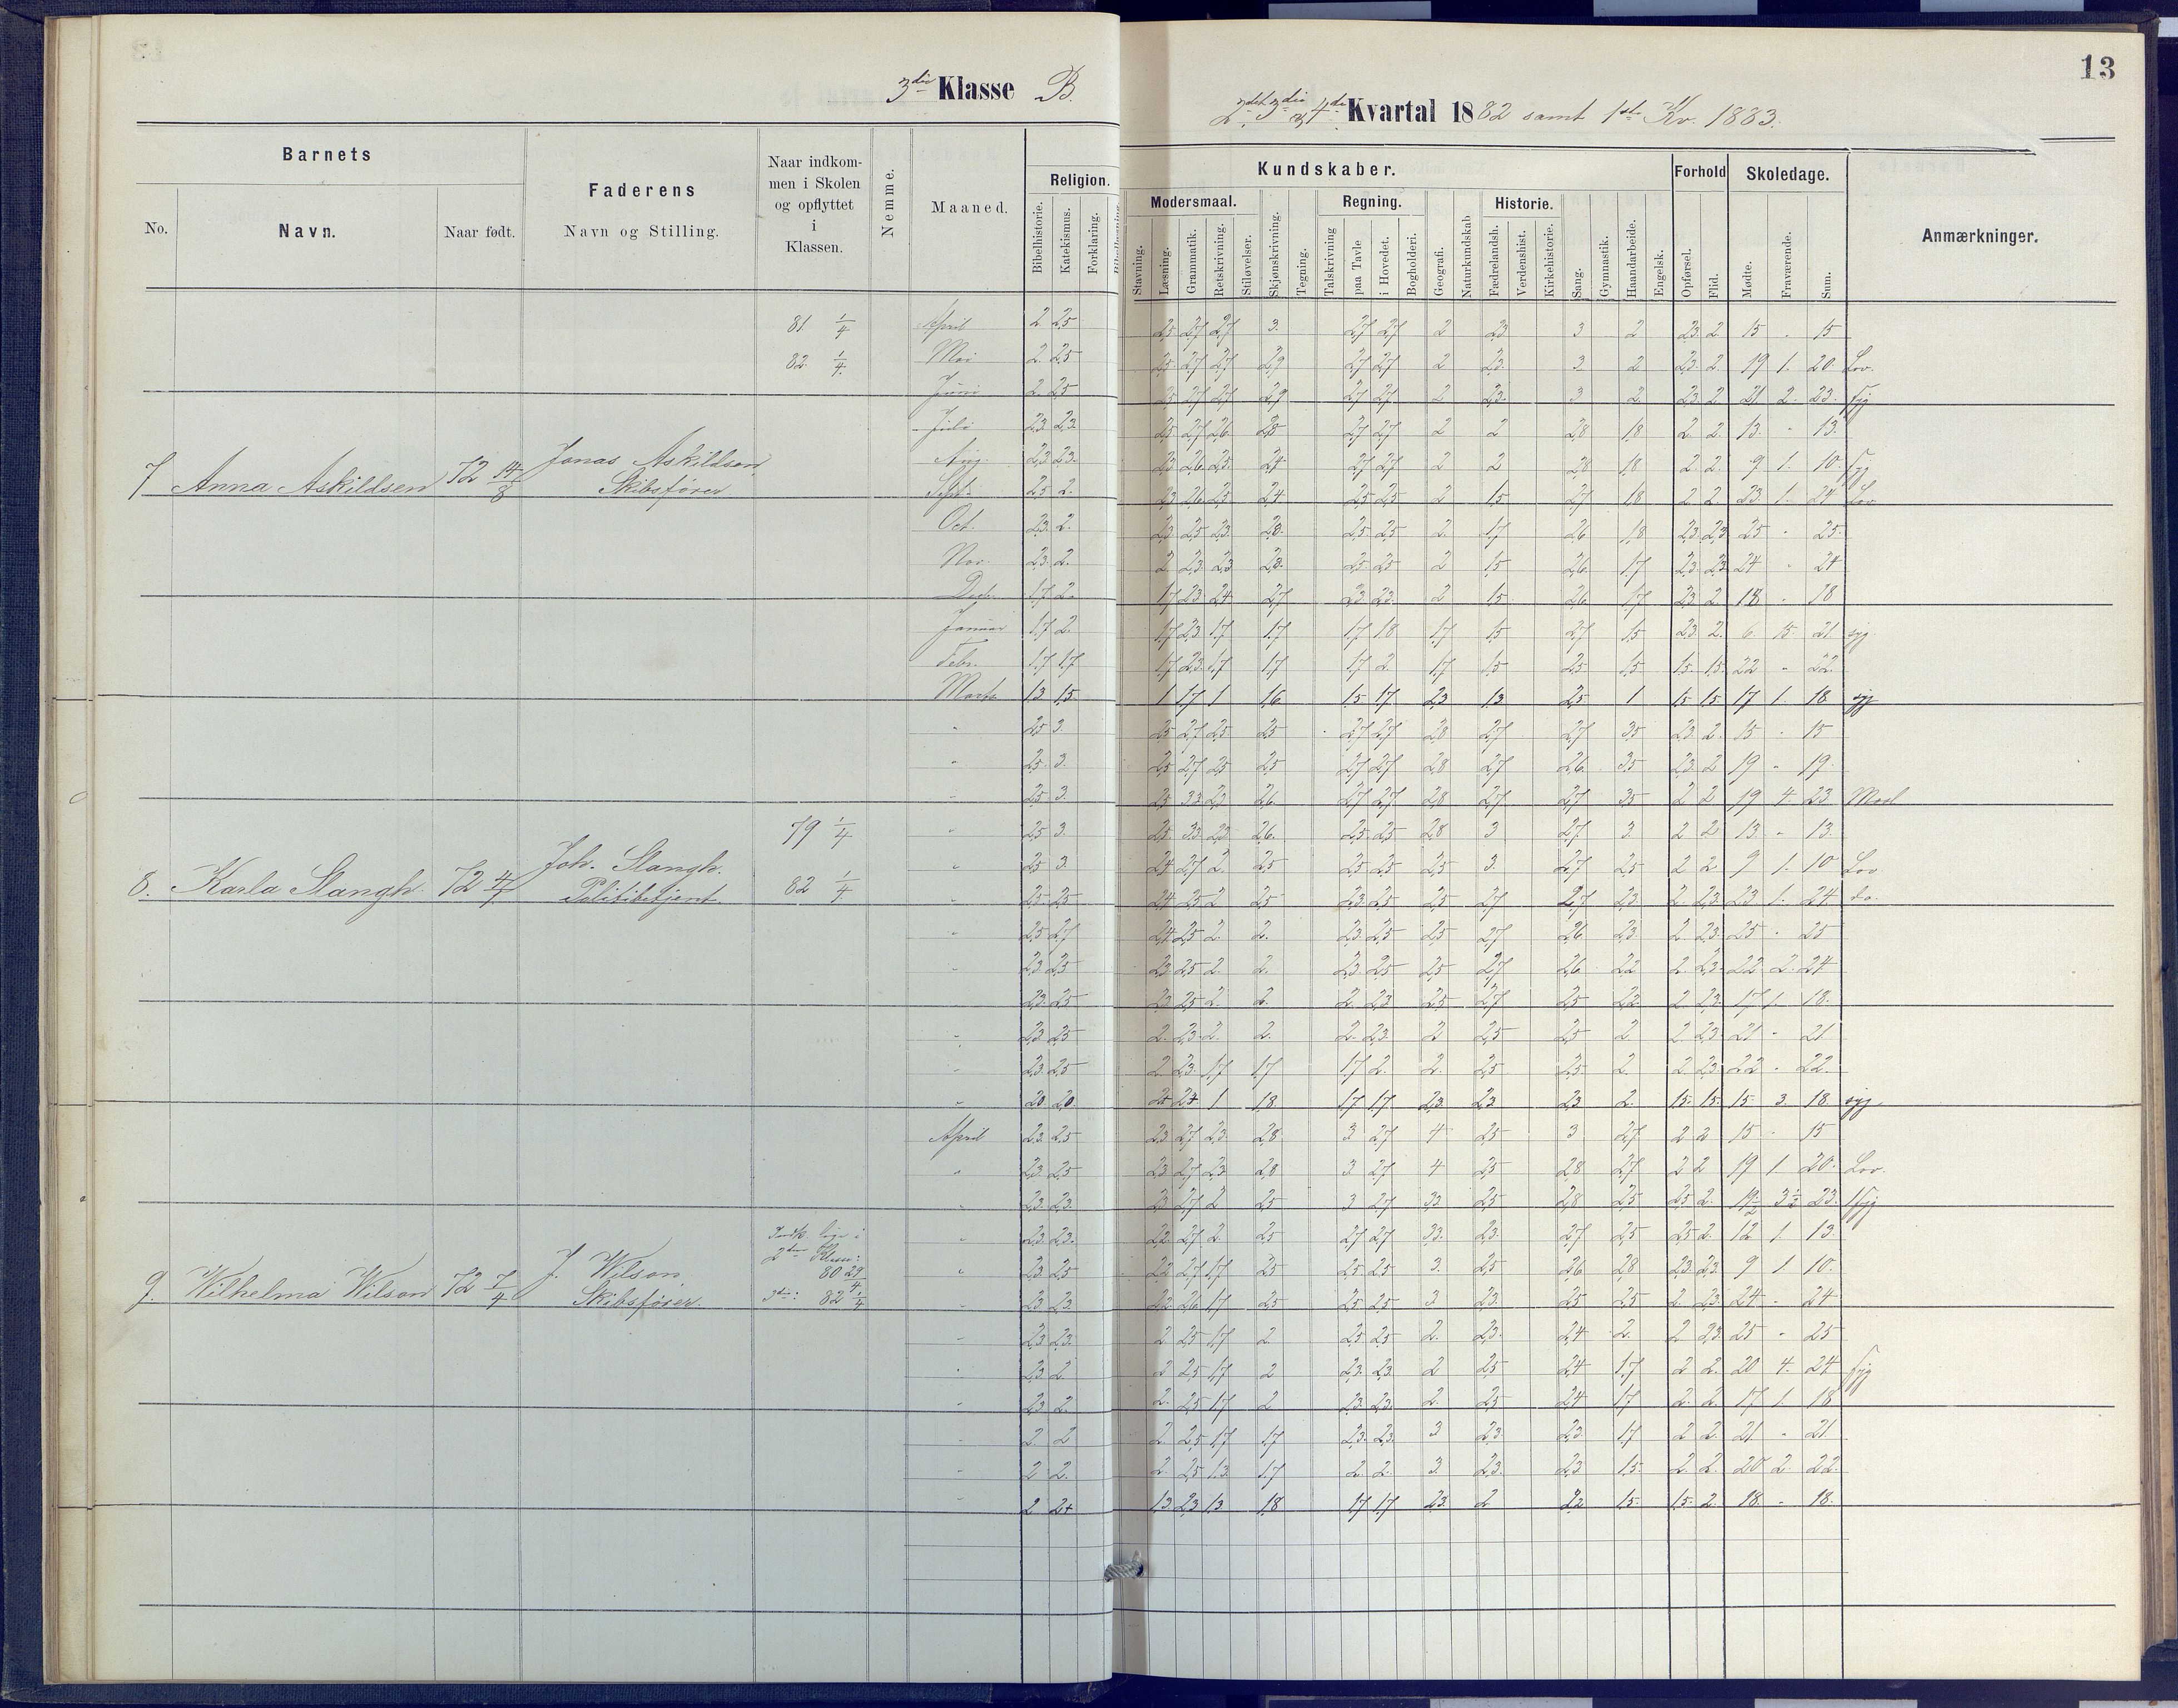 3die Klasse B.
13
2det 3die & 4de Kvartal 1882 samt 1ste Kv. 1883.
Barnets
No.
Navn.
Naar født.
Faderens
Navn og Stilling.
Naar indkom-
men i Skolen
og opflyttet
i
Klassen.
Nemme.
Maaned.
Kundskaber.
Religion.
Bibelhistorie.
Katekismus.
Forklaring.
Modersmaal.
Stavning.
Læsning.
Grammatik.
Retskrivning.
Stiløvelser.
Skjønskrivning.
Tegning.
Regning.
Talskrivning
paa Tavle
i Hovedet.
Bogholderi.
Geografi.
Naturkundskab
Historie.
Fædrelandsh.
Verdenshist.
Kirkehistorie.
Sang.
Gymnastik.
Haandarbeide.
Engelsk.
Forhold
Opførsel.
Flid.
Skoledage.
Mødte.
Fraværende.
Sum.
Anmærkninger.
7 Anna Askildsen 72 14/8 Jonas Askildsen
Skibsfører
81 1/4
82 1/4
April 2 2,5 2,5 2,7 2,7 3 2,7 2,7 2 2,3 3 2 2,3 2 15 - 15
Mai 2 2,5 2,5 2,7 2,7 2,9 2,7 2,7 2 2,3 3 2 2,3 2 19 1 20 Lov.
Juni 2 2,5 2,5 2,7 2,7 2,9 2,7 2,7 2 2,3 3 2 2,3 2 21 2 23 Syg
Juli 2,3 2,3 2,5 2,7 2,6 2,8 2,7 2,7 2 2 2,8 1,8 2 2 13 - 13
Aug. 2,3 2,3 2,3 2,6 2,5 2,4 2,7 2,7 2 2 2,8 1,8 2 2 9 1 10 Syg
Sept. 2,5 2 2,3 2,6 2,5 2,4 2,5 2,5 2 1,5 2,7 1,8 2 2 23 1 24 Lov
Oct. 2,3 2 2,3 2,5 2,3 2,8 2,5 2,5 2 1,7 2,6 1,8 2,3 2,3 25 - 25
Nov. 2,3 2 2 2,3 2,3 2,8 2,5 2,5 2 1,5 2,6 1,7 2,3 2,3 24 - 24
Decb. 1,7 2 1,7 2,3 2,4 2,7 2,3 2,3 2 1,5 2,6 1,7 2,3 2 18 - 18
Januar 1,7 2 1,7 2,3 1,7 1,7 1,7 1,8 1,7 1,5 2,7 1,5 2,3 2 6 15 21 syg
Febr. 1,7 1,7 1,7 2,3 1,7 1,7 1,7 2 1,7 1,5 2,5 1,5 1,5 1,5 22 - 22
Marts 1,3 1,5 1 1,7 1 1,6 1,5 1,7 2,3 1,3 2,5 1 1,5 1,5 17 1 18 syg
8. Karla Stangh. 72 4/4 Joh. Stangh.
Politibetjent
79 1/4
82 1/4
" 2,5 3 2,5 2,7 2,5 2,5 2,7 2,7 2,8 2,7 2,7 3,5 2,3 2 15 - 15
" 2,5 3 2,5 2,7 2,5 2,5 2,7 2,7 2,8 2,7 2,6 3,5 2,3 2 19 - 19
" 2,5 3 2,5 3,3 2,3 2,6 2,7 2,7 2,8 2,7 2,7 3,5 2 2 19 4 23
" 2,5 3 2,5 3,3 2,3 2,6 2,5 2,5 2,8 3 2,7 3 2 2 13 - 13
" 2,5 3 2,4 2,7 2 2,5 2,5 2,5 2,5 3 2,7 2,5 2 2 9 1 10 Lov
" 2,5 2,5 2,4 2,5 2 2,5 2,3 2,5 2,5 2,7 2,7 2,3 2 2,3 23 1 24 do.
" 2,5 2,7 2,4 2,5 2 2 2,3 2,5 2,5 2,7 2,6 2,3 2 2,3 25 - 25
" 2,3 2,5 2,3 2,5 2 2 2,3 2,5 2,5 2,7 2,6 2,2 2 2,3 22 2 24
" 2,3 2,5 2,3 2,5 2 2 2 2,3 2,5 2,7 2,5 2,2 2 2,3 17 1 18
" 2,3 2,5 2 2,3 2 2 2 2,3 2 2,5 2,5 2 2 2,3 21 - 21
" 2,3 2,5 2 2,3 1,7 1,7 1,7 2 2 2,5 2,5 2 2 2,3 22 - 22
" 2,0 2,0 2+ 2+ 1 1,8 1,7 1,7 2,3 2,3 2,3 2 1,5 1,5 15 3 18 syg
9. Wilhelma Wilson 72 7/4 J. Wilson
Skibsfører.
Indk. lige i
2den Klasse:
80 29/4
3die: 82 1/4
April 2,3 2,5 2,3 2,7 2,3 2,8 3 2,7 4 2,5 3 2,7 2 2 15 - 15
" 2,3 2,5 2,3 2,7 2,3 2,8 3 2,7 4 2,5 2,8 2,7 2 2 19 1 20 Lov.
" 2,3 2,3 2,3 2,7 2 2,5 3 2,7 3,3 2,5 2,8 2,5 2,5 2 19 1/2 3 1/2 23 Syg
" 2,3 2,3 2,2 2,7 2 2,5 2,7 2,7 3,3 2,3 2,7 2,5 2,5 2 12 1 13
" 2,3 2,5 2,2 2,7 1,7 2,5 2,5 2,5 3 2,5 2,6 2,8 2,3 2,3 9 1 10
" 2,3 2,3 2,2 2,6 1,7 2,5 2,5 2,5 3 2,3 2,5 2,5 2 2,3 24 - 24
" 2,3 2,3 2 2,5 1,7 2 2,5 2,5 2 2,3 2,4 2 2 2,3 25 - 25
" 2,3 2 2 2,5 1,7 2 2,3 2,3 2 2,5 2,4 1,7 2 2 20 4 24 Syg
" 2,3 2 2 2,5 1,7 2 2,3 2,3 2 2,5 2,4 1,7 2 2 17 1 18
" 2 2 2 2,5 1,7 1,7 2,3 2,3 3 2,3 2,3 1,7 2 2 21 - 21
" 2 2 2 2,5 1,3 1,7 2 2 3 2,3 2,3 1,5 2 2 20 2 22
" 2 2+ 1,3 2,3 1,3 1,8 1,7 1,7 2,3 2 2,2 1,5 1,5 2 18 - 18